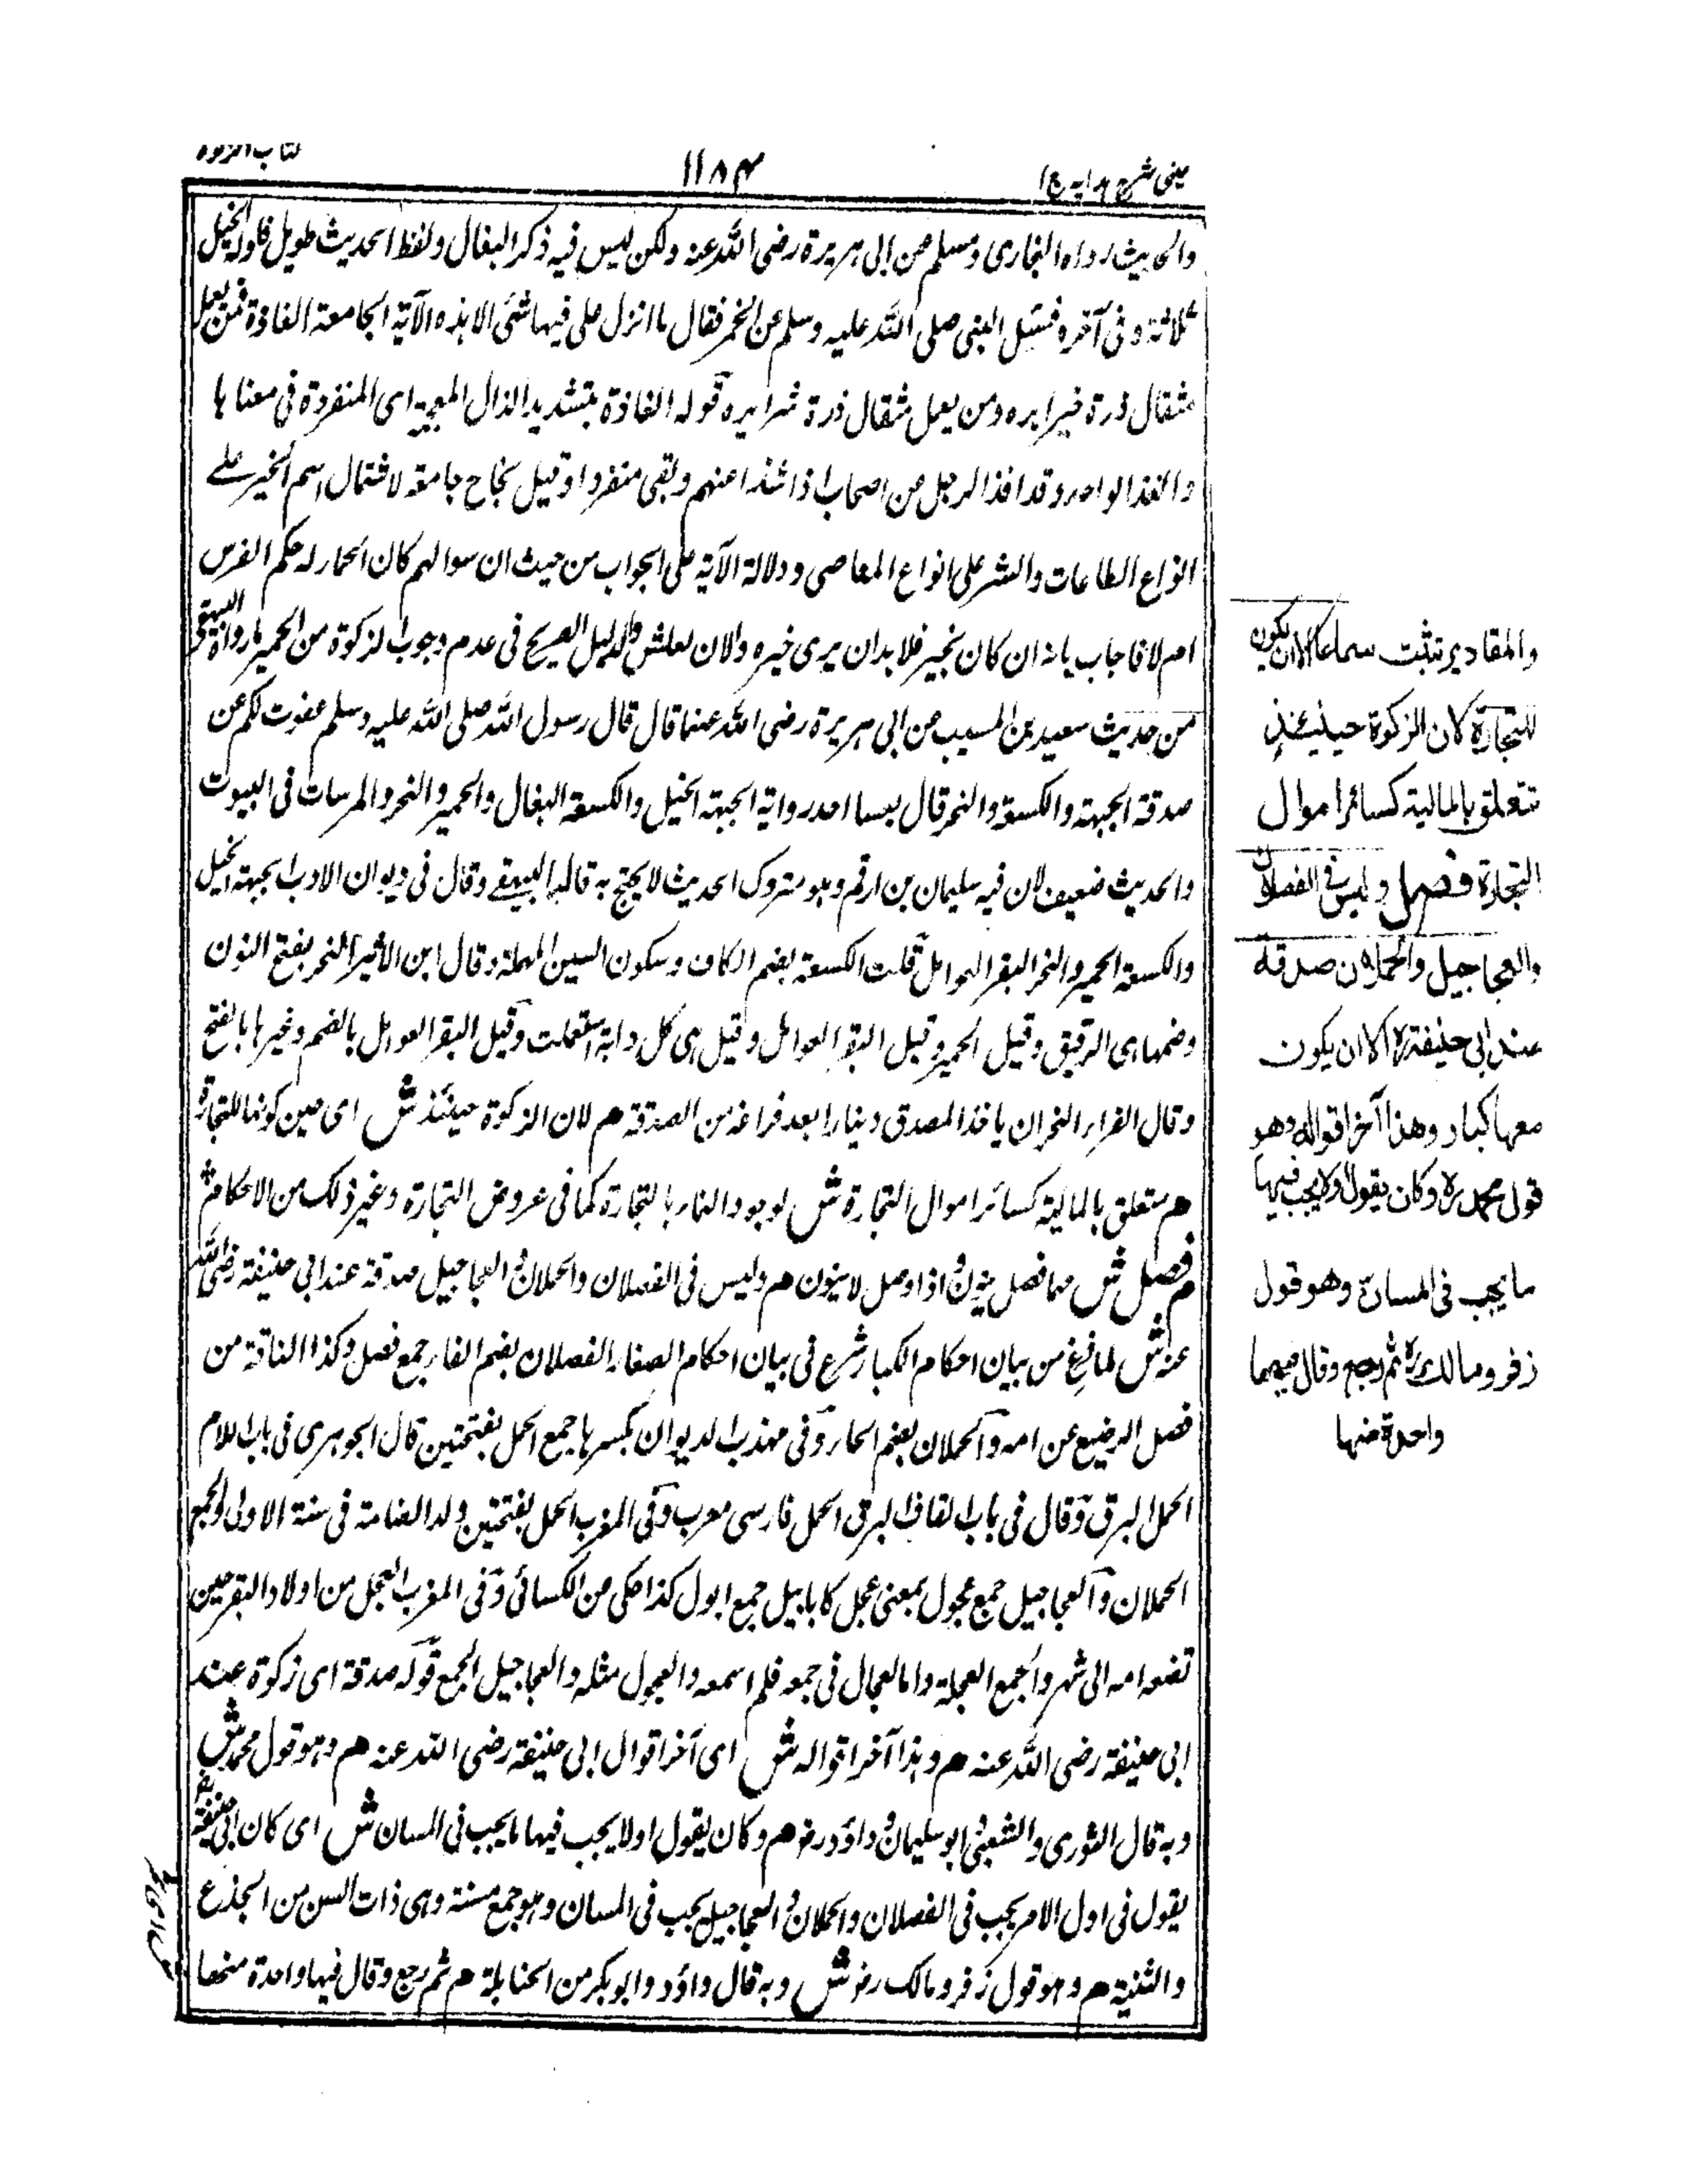 عینی شرح ہدایہ ج ا
۱۱۸۴
کتاب الزکوة
والحدیث رواه البخاری ومسلم عن ابی هریرة رضی الله عنه ولکن لیس فیه ذکر البغال ولفظ الحدیث طویل فاوله الخیل
ثلاثة وفی آخره فسئل النبی صلی الله علیه وسلم عن الحمر فقال ما انزل علی فیها شئی الا هذه الآیة الجامعة الفاذة فمن یعمل
مثقال ذرة خیرا یره ومن یعمل مثقال ذرة شرا یره قوله الفاذة بتشدید الذال المعجمة ای المنفردة فی معناها
والفذ الواحد وقد افذ الرجل من اصحابه اذا شذا عنهم وبقی منفردا وقیل جامعة لاشتمال اسم الخیر علے
انواع الطاعات والشر علی انواع المعاصی ودلالة الآیة علی الجواب من حیث ان سوالهم کان الحمار له حکم الفرس
ام لا فاجاب بانه ان کان بخیر فلا بد ان یری خیره والدلیل الصریح فی عدم وجوب الزکوة من الحمیر ما رواه البیهقی
من حدیث سعید بن المسیب عن ابی هریرة رضی الله عنهما قال قال رسول الله صلی الله علیه وسلم عفوت لکم عن
صدقة الجبهة والکسعة والنخر قال احد رواية الجبهة الخیل والکسعة البغال والحمیر والنخر المرسات فی البیوت
والحدیث ضعیف لان فیه سلیمان بن ارقم وهو متروک الحدیث لا یحتج به قاله البیهقے وقال فی دیوان الادب الجبهة الخیل
والکسعة الحمیر والنخر البقر العوامل قلت الکسعة بضم الکاف وسکون السین المهملة وقال ابن الاثیر النخر بفتح النون
وضمها هی الرقیق وقیل الحمیر وقیل البقر العوامل وقیل هی کل دابة استعملت وقیل البقر العوامل بالضم وغیرها بالفتح
وقال الفراء النخر ان یاخذ المصدق دینارا بعد فراغه من الصدقة م لان الزکوة حینئذ ش ای حین کونها للتجارة
م متعلق بالمالیة کسائر اموال التجارة ش لوجود النماء بالتجارة کما فی عروض التجارة وغیر ذلک من الاحکام ش
م فصل ش مما فصل ینون اذا وصل لا ینون م ولیس فی الفصلان والحملان والعجاجیل صدقة عند ابی حنیفة رضی الله
عنه ش لما فرغ من بیان احکام الکبار شرع فی بیان احکام الصغار الفصلان بضم الفاء جمع فصیل وکذا الناقة من
فصل الرضیع عن امه والحملان بضم الحاء وفی مهذب الدیوان بکسرها جمع الحمل بفتحتین قال الجوهری فی باب اللام
الحمل البرق وقال فی باب القاف البرق الحمل فارسی معرب وفی المغرب الحمل بفتحتین ولد الضانة فی سنة الاولی والجمع
الحملان والعجاجیل جمع عجول بمعنی عجل کابابیل جمع ابول کذا حکی عن الکسائی وفی المغرب العجل من اولاد البقر حین
تضعه امه الی شهر واجمع العجلة واما العجال فی جمعه فلم اسمعه والعجول مثله والعجاجیل الجمع قوله صدقة ای زکوة عند
ابی حنیفة رضی الله عنه م وهذا آخر اقواله ش ای آخر اقوال ابی حنیفة رضی الله عنه م وهو قول محمد ش
وبه قال الثوری والشعبی وابو سلیمان وداؤد رض م وکان یقول اولا یجب فیها ما یجب فی المسان ش ای کان ابی حنیفة
یقول فی اول الامر یجب فی الفصلان والحملان والعجاجیل یجب فی المسان وهو جمع مسنة وهی ذات السن من الجذع
والثنیة م وهو قول زفر ومالک رض ش وبه قال داؤد وابوبکر من الحنابلة م ثم رجع وقال فیها واحدة منها
والمقادیر تثبت سماعا الا ان یکون
للتجارة لان الزکوة حینئذ
تتعلق بالمالیة کسائر اموال
التجارة فصل ولیس فی الفصلان
والعجاجیل والحملان صدقة
عند ابی حنیفة رہ الا ان یکون
معها کبار وهذا آخر اقواله وهو
قول محمد رہ وکان یقول اولا یجب فیها
ما یجب فی المسان وهو قول
زفر ومالک رہ ثم رجع وقال فیها
واحدة منها